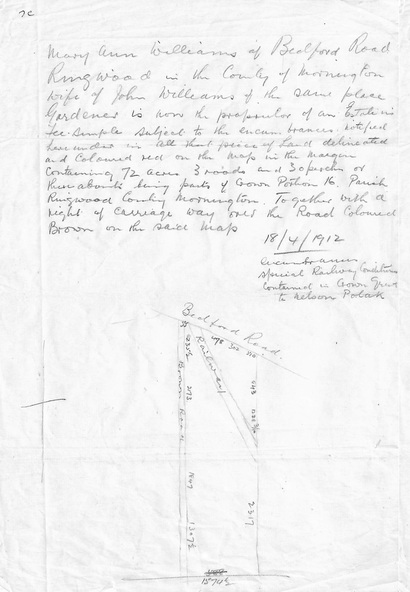 Mary Ann Williams of Bedford Road
Ringwood in the County of Mornington
wife of John Williams of the same place
Gardener is now the proprietor of an Estate in
fee-simple subject to the encumbrances notified
hereunder in all that piece of Land delineated
and coloured red on the map in the margin
containing 72 acres 3 roods and 30 perches or
thereabouts being part of Crown Portion 16. Parish
Ringwood County Mornington. Together with a
right of carriage way over the Road Coloured
Brown on the said Map
18/4/1912
Encumbrances
Special Railway Conditions
contained in Crown Grant
to Nelson Polak
Bedford Road.
Railway
Brown Road
273
2317